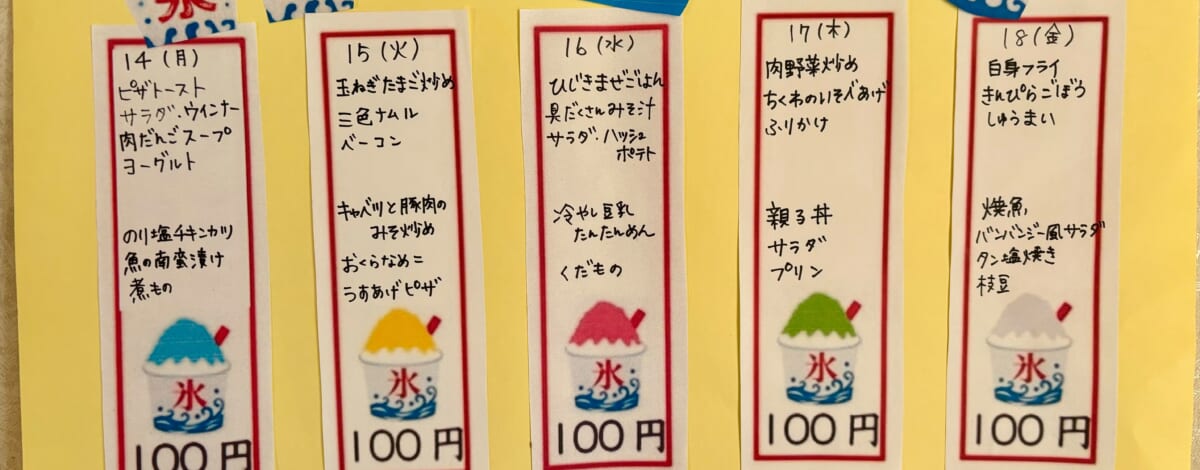 氷
14(月)
ピザトースト
サラダ・ウインナー
肉だんごスープ
ヨーグルト
のり塩チキンカツ
魚の南蛮漬け
煮もの
氷
100円
15(火)
玉ねぎたまご炒め
三色ナムル
ベーコン
キャベツと豚肉の
みそ炒め
おくらなめこ
うすあげピザ
氷
100円
16(水)
ひじきまぜごはん
具だくさんみそ汁
サラダ・ハッシュ
ポテト
冷やし豆乳
たんたんめん
くだもの
氷
100円
17(木)
肉野菜炒め
ちくわのいそべあげ
ふりかけ
親子丼
サラダ
プリン
氷
100円
18(金)
白身フライ
きんぴらごぼう
しゅうまい
焼魚
バンバンジー風サラダ
タン塩焼き
枝豆
氷
100円